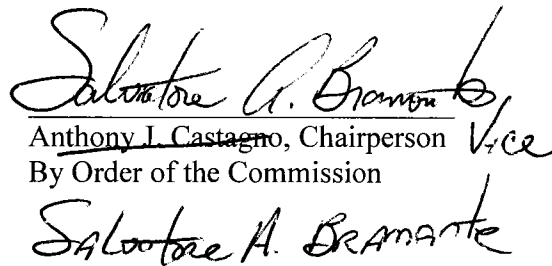 Salvatore A. Bramante
Anthony J. Castagno, Chairperson Vice
By Order of the Commission
SALVATORE A. BRAMANTE